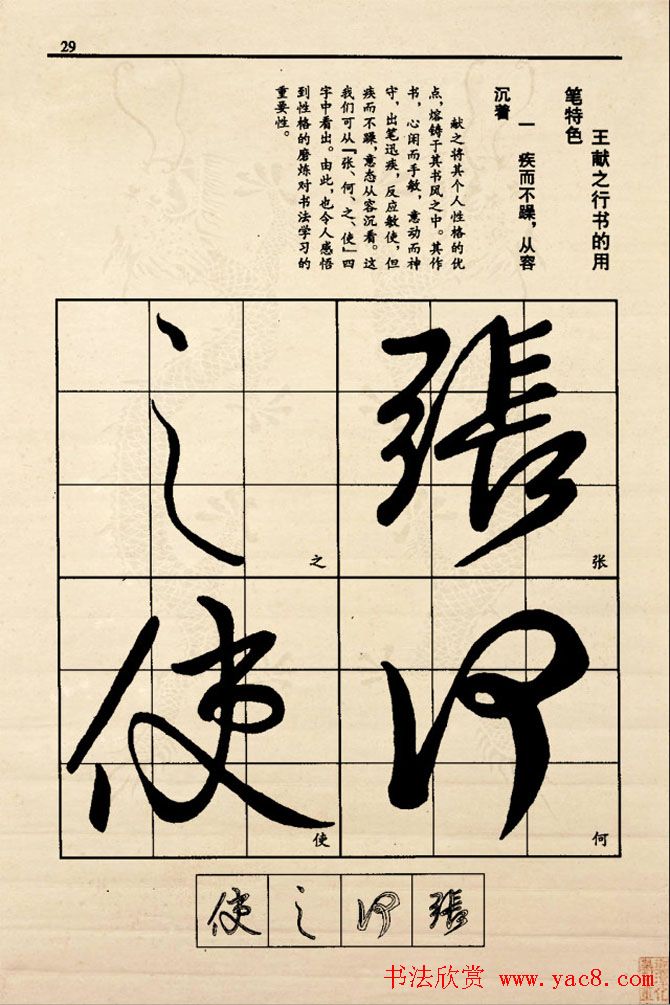 29
王献之行书的用
笔特色
一 疾而不躁，从容
沉着
献之将其个人性格的优
点，熔铸于其书风之中。其作
书，心闲而手敏，意动而神
守，出笔迅疾，反应敏使，但
疾而不躁，意态从容沉看。这
我们可从「张、何、之、使」四
字中看出。由此，也令人感悟
到性格的磨炼对书法学习的
重要性。
張
张
何
何
之
之
使
使
張 何 之 使
书法欣赏 www.yac8.com